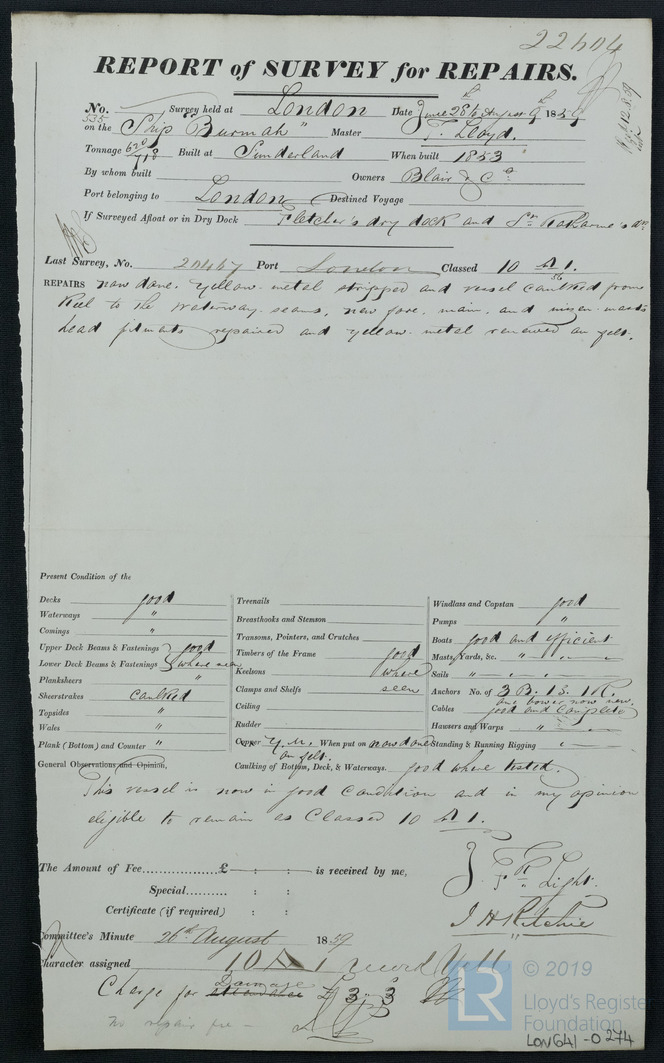 22604
REPORT of SURVEY for REPAIRS.
No. 535 Survey held at London Date June 28th August 9th 1859
on the Ship "Burmah" Master T. Lloyd.
Tonnage 620/713 Built at Sunderland When built 1853
By whom built Owners Blair & Co
Port belonging to London Destined Voyage
If Surveyed Afloat or in Dry Dock Fletcher's dry dock and
Last Survey, No. 20467 Port London Classed 10 A 1.
56
REPAIRS now done. Yellow metal stripped and vessel caulked from
keel to the waterway seams, new fore, main, and mizen masts
head repaired and yellow metal renewed on felt.
Present Condition of the
Decks good
Waterways "
Comings "
Upper Deck Beams & Fastenings good
Lower Deck Beams & Fastenings where seen
Planksheers "
Sheerstrakes caulked
Topsides "
Wales "
Plank (Bottom) and Counter "
General Observations and Opinion,
Treenails
Breasthooks and Stemson
Transoms, Pointers, and Crutches
Timbers of the Frame good
Keelsons where
Clamps and Shelfs seen
Ceiling
Rudder
Copper Y.M. When put on now done
on felt.
Caulking of Bottom, Deck, & Waterways. good where tested.
Windlass and Capstan good
Pumps "
Boats good and efficient
Masts, Yards, &c. " " "
Sails " " "
Anchors No. of 3 B. 1 S. 1 K.
one bower now new.
Cables good and complete
Hawsers and Warps " "
Standing & Running Rigging " "
This vessel is now in good condition and in my opinion
eligible to remain as Classed 10 A 1.
The Amount of Fee £ : : is received by me,
Special : :
Certificate (if required) : :
Light.
J H Ritchie
Committee's Minute 26th August 1859
Character assigned 10 A 1
Charge for Damage attendance £3 " 3
No repair fee -
© 2019
LR
Lloyd's Register
Foundation
LON641-0274